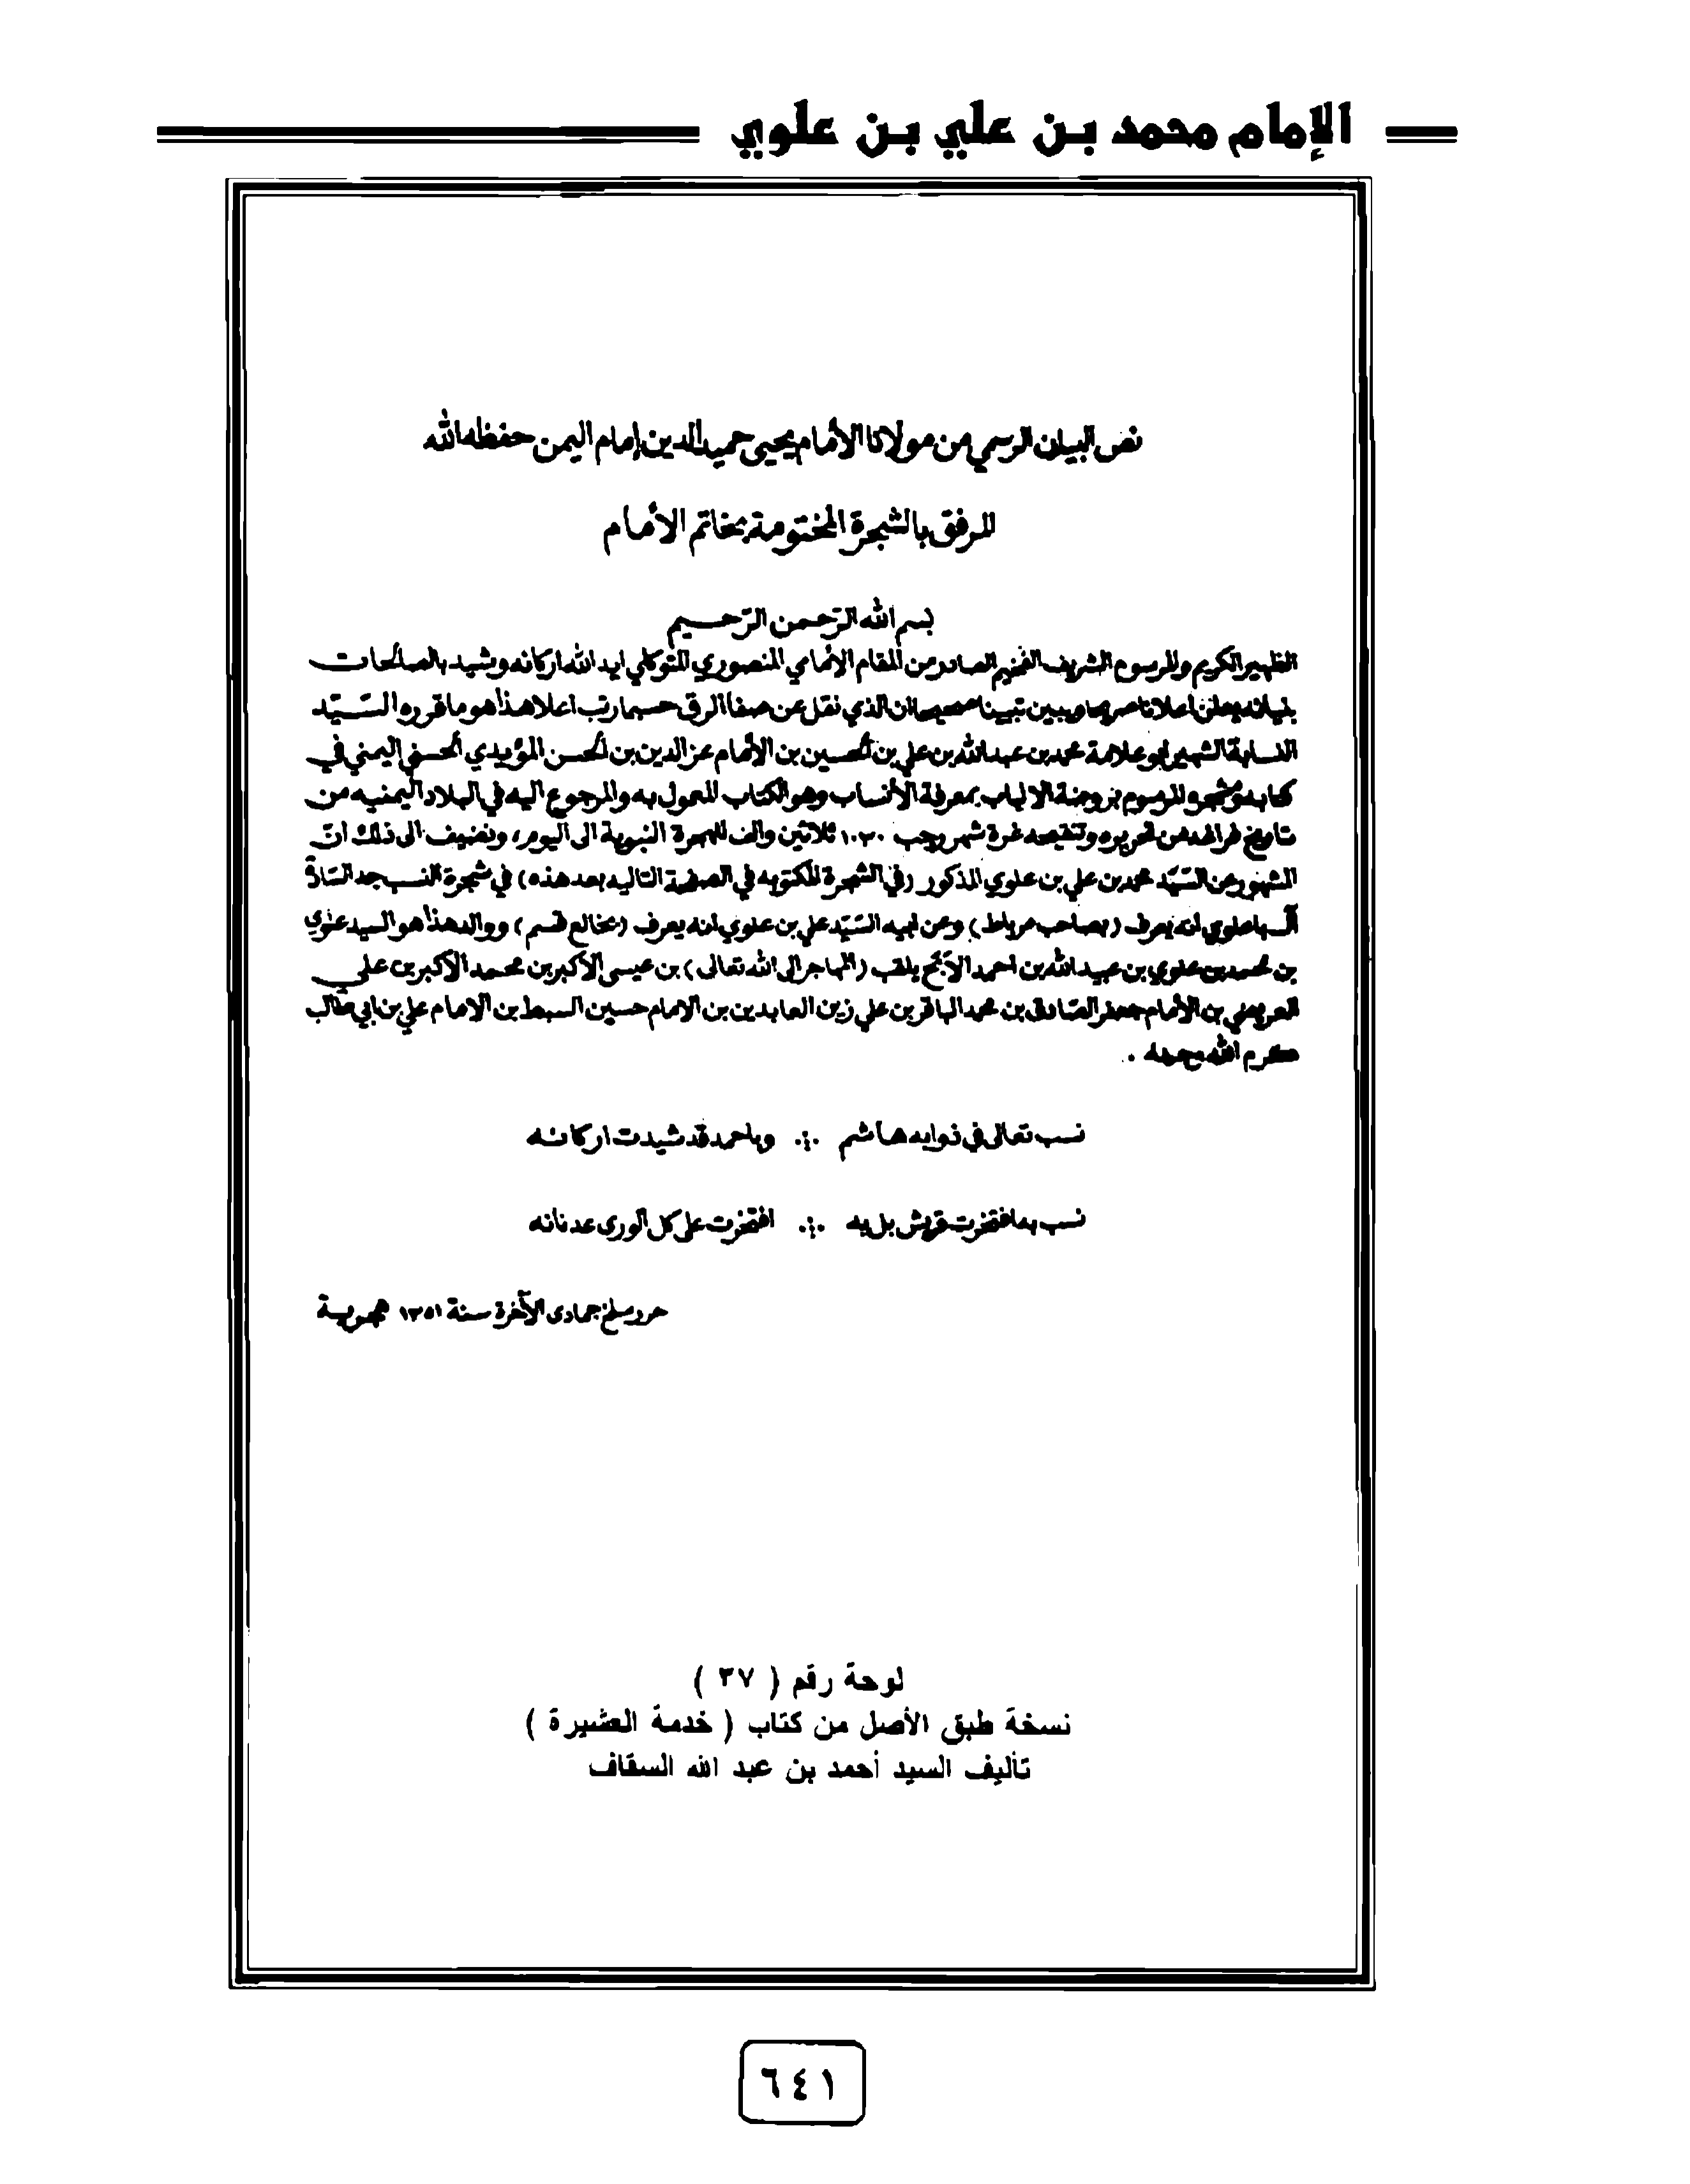 الإمام محمد بن علي بن علوي
نص البيان الرسمي من مولانا الأمام يحيى حميد الدين إمام اليمن حفظه الله
المرفق بالشجرة المختومة بخاتم الأمام
بسم الله الرّحمن الرّحيم
الظهير الكريم والمرسوم الشريف الفخيم الصادر من المقام الإمامي المنصوري المتوكلي ايد الله اركانه وشيد بالصالحات
بنيانه يعلن اعلانا صريحا ويبين تبيينا صحيحا ان الذي نقل عن صفا الرق حسبما رتب اعلا هذا هو ما قرره السّيّد
النسابة الشهير ابو علامة محمد بن عبد الله بن علي بن الحسين بن الأمام عز الدين بن الحسن المؤيدي الحسني اليمني في
كتابه ومشجره المرسوم بروضة الالباب بمعرفة الأنساب وهو الكتاب المعول به والمرجوع اليه في البلاد اليمنيه من
تاريخ فراغه من تحريره وتنقيحه غرة شهر رجب ١٠٣٠ ثلاثين والف للهجرة النبوية الى اليوم، ونضيف الى ذلك ان
المشهور عن السّيّد محمد بن علي بن علوي المذكور (في الشجرة المكتوبه في الصفحة التاليه بعد هذه) في شجرة النسب جد السّادة
آل باعلوي انه يعرف (بصاحب مرباط) وعن ابيه السّيّد علي بن علوي انه يعرف (بخالع قسم) ووالد هذا هو السيد علوي
بن محمد بن علوي بن عبيد الله بن احمد الأبح يلقب (المهاجر الى الله تعالى) بن عيسى الأكبر بن محمد الأكبر بن علي
العريضي بن الأمام جعفر الصّادق بن محمد الباقر بن علي زين العابدين بن الامام حسين السبط بن الامام علي بن ابي طالب
كرم الله وجهه .
نسب تعالى في ذوايه هاشم ∴ وباحمد قد شيدت اركانه
نسب به افتخرت قريش بل به ∴ افتخرت على كل الورى عدنانه
حرر سلخ جمادى الآخرة سنة ١٣٥١ هجرية
لوحة رقم ( ٣٧ )
نسخة طبق الأصل من كتاب ( خدمة العشيرة )
تأليف السيد أحمد بن عبد الله السقاف
٦٤١